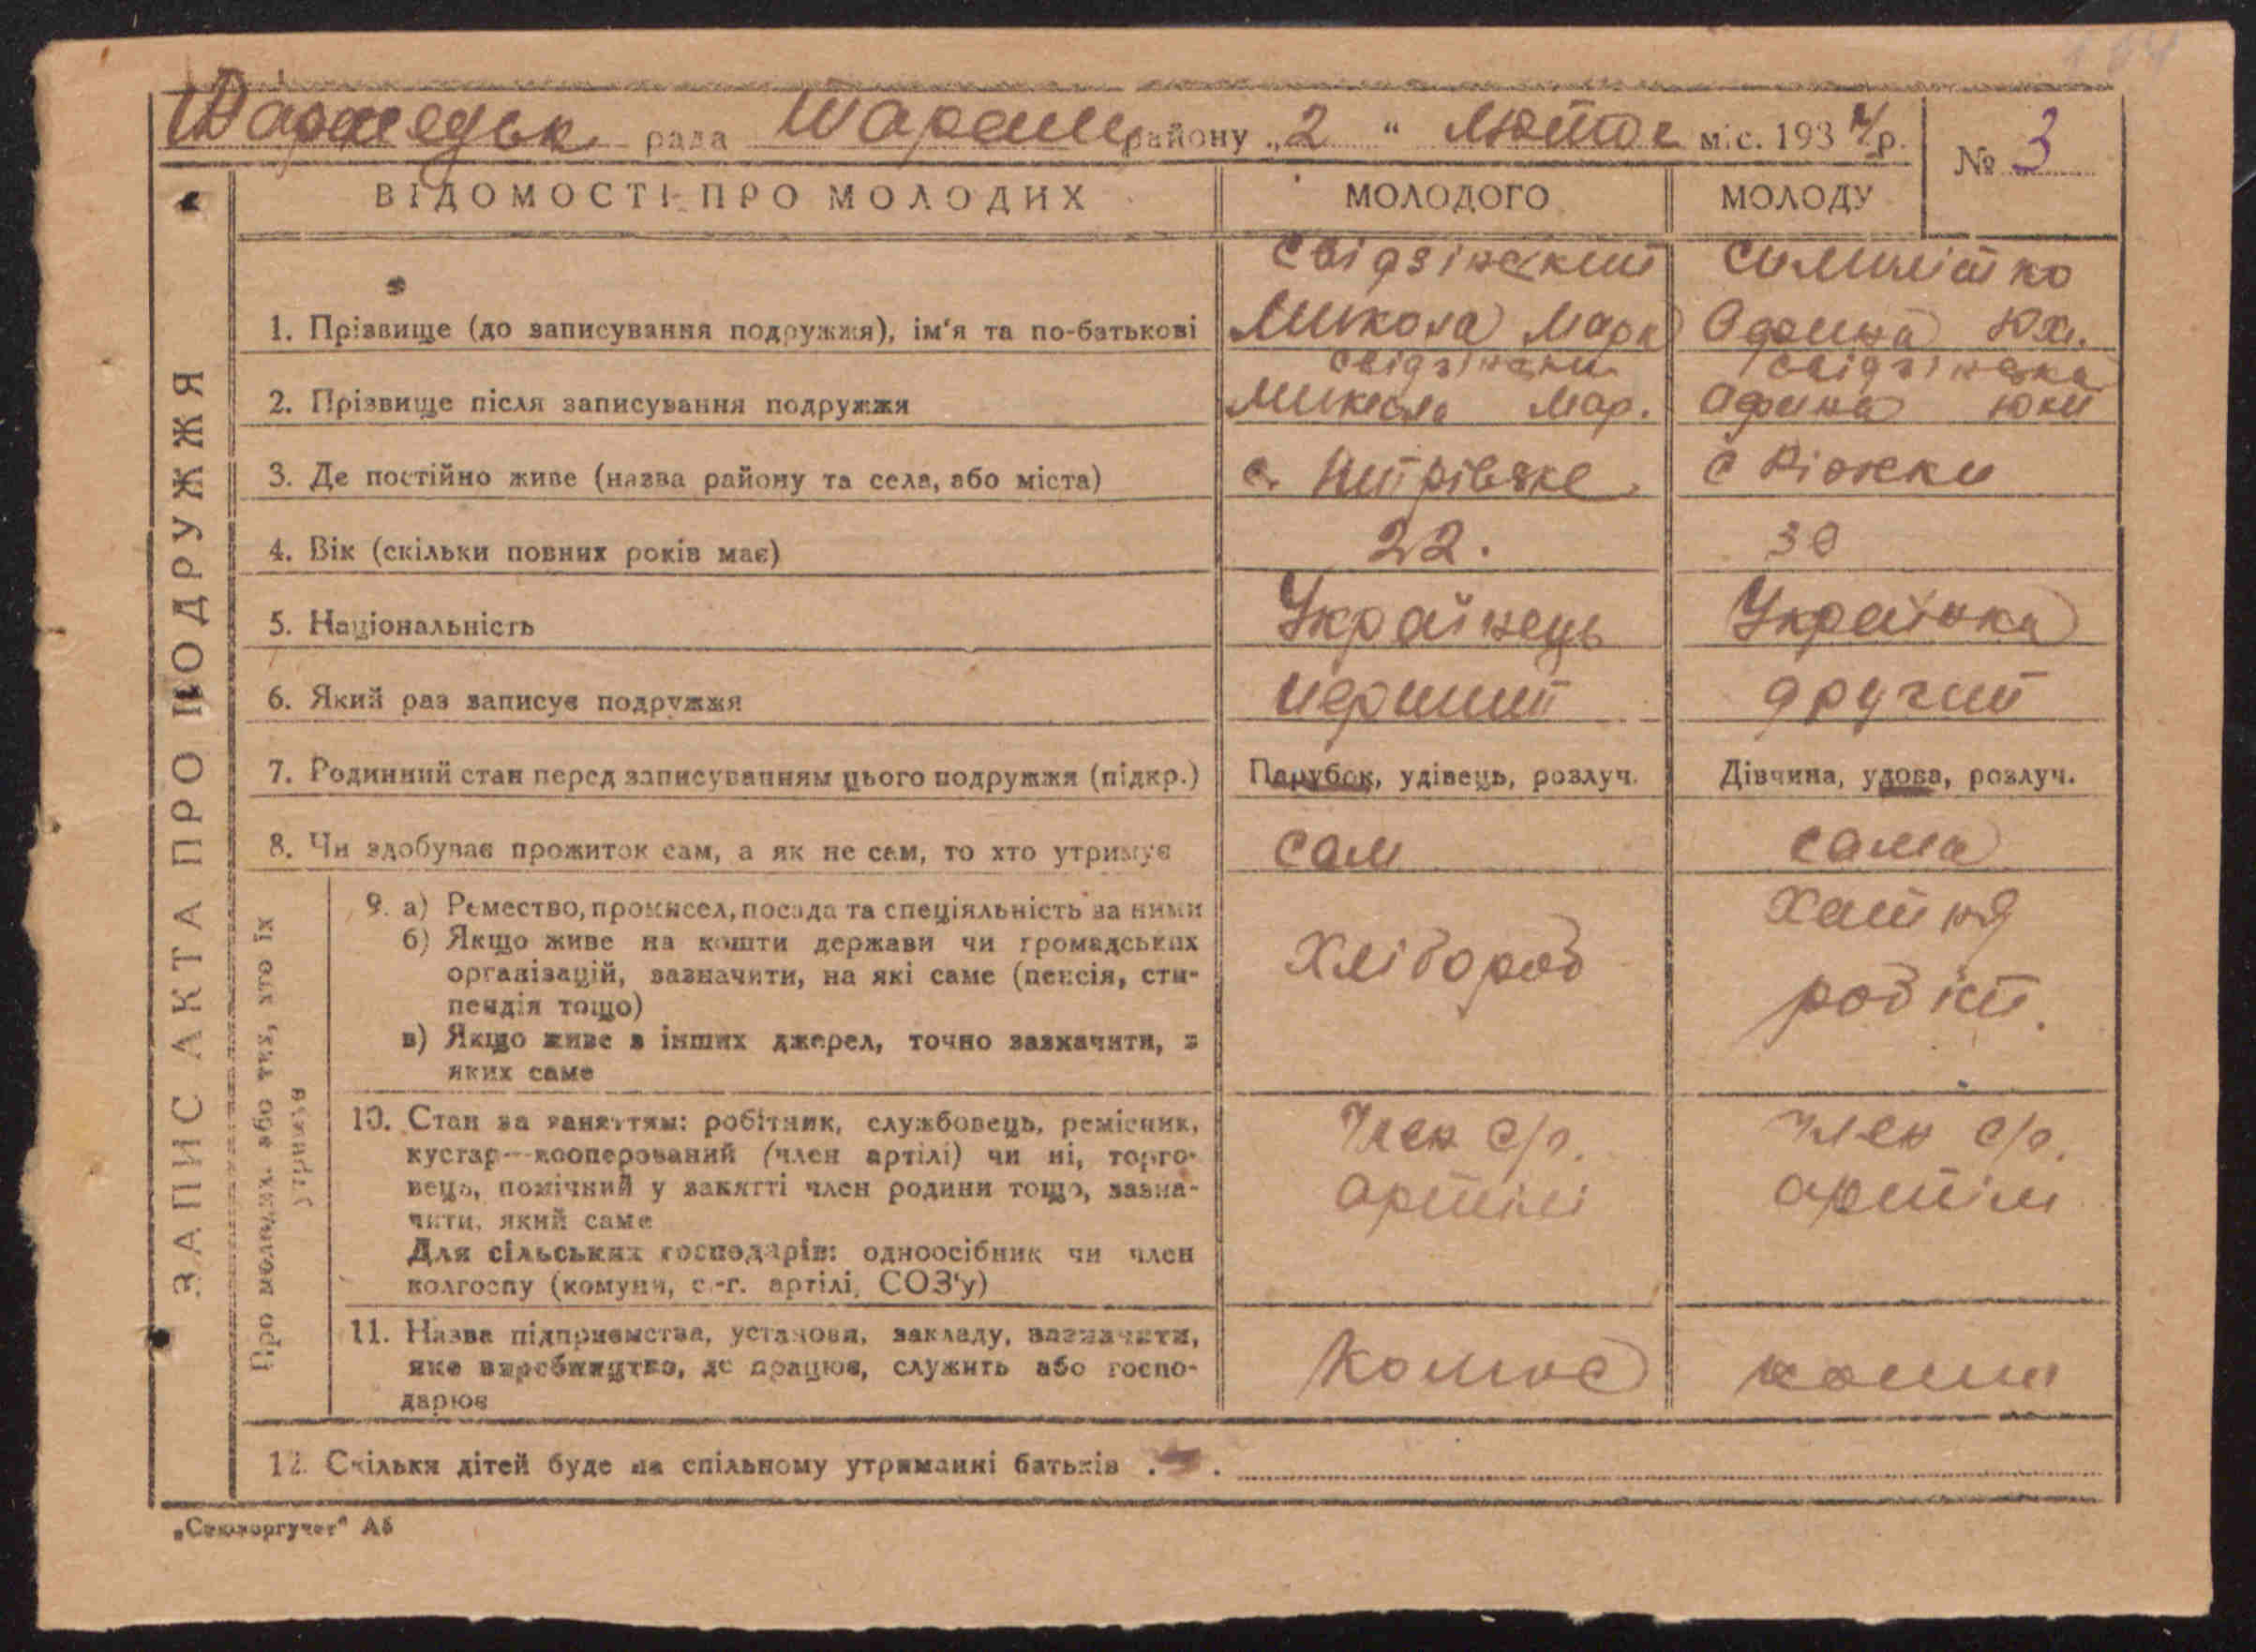 рада району „2“ Лютое міс. 1934 р.
№ 3
ВІДОМОСТІ ПРО МОЛОДИХ
МОЛОДОГО
МОЛОДУ
ЗАПИС АКТА ПРО ПОДРУЖЖЯ
1. Прізвище (до записування подружжя), ім'я та по-батькові
Свідзінский
Микола Марк
Юхи.
2. Прізвище після записування подружжя
Свідзінски
Микола Мар.
Свідзінска
3. Де постійно живе (назва району та села, або міста)
с.
с Ріжки
4. Вік (скільки повних років має)
22.
30
5. Національність
Українець
Українка
6. Який раз записує подружжя
перший
другий
7. Родинний стан перед записуванням цього подружжя (підкр.)
Парубок, удівець, розлуч.
Дівчина, удова, розлуч.
8. Чи здобуває прожиток сам, а як не сам, то хто утримує
сам
сама
Про молодих або тих, хто їх утримує
9. а) Ремество, промисел, посада та спеціяльність за ними
б) Якщо живе на кошти держави чи громадських
організацій, зазначити, на які саме (пенсія, сти-
пендія тощо)
в) Якщо живе з інших джерел, точно зазначити, з
яких саме
Хлібороб
Хатня
робіт.
10. Стан за заняттям: робітник, службовець, ремісник,
кустар—кооперований (член артілі) чи ні, торго-
вець, помічний у занятті член родини тощо, зазна-
чити, який саме
Для сільських господарів: одноосібник чи член
колгоспу (комуни, с.-г. артілі, СОЗ'у)
Член с/г.
артілі
член с/г.
артіли
11. Назва підприємства, установи, закладу, зазначити,
яке виробництво, де працює, служить або госпо-
дарює
12. Скільки дітей буде на спільному утриманні батьків . .
„Союзоргучет“ А5